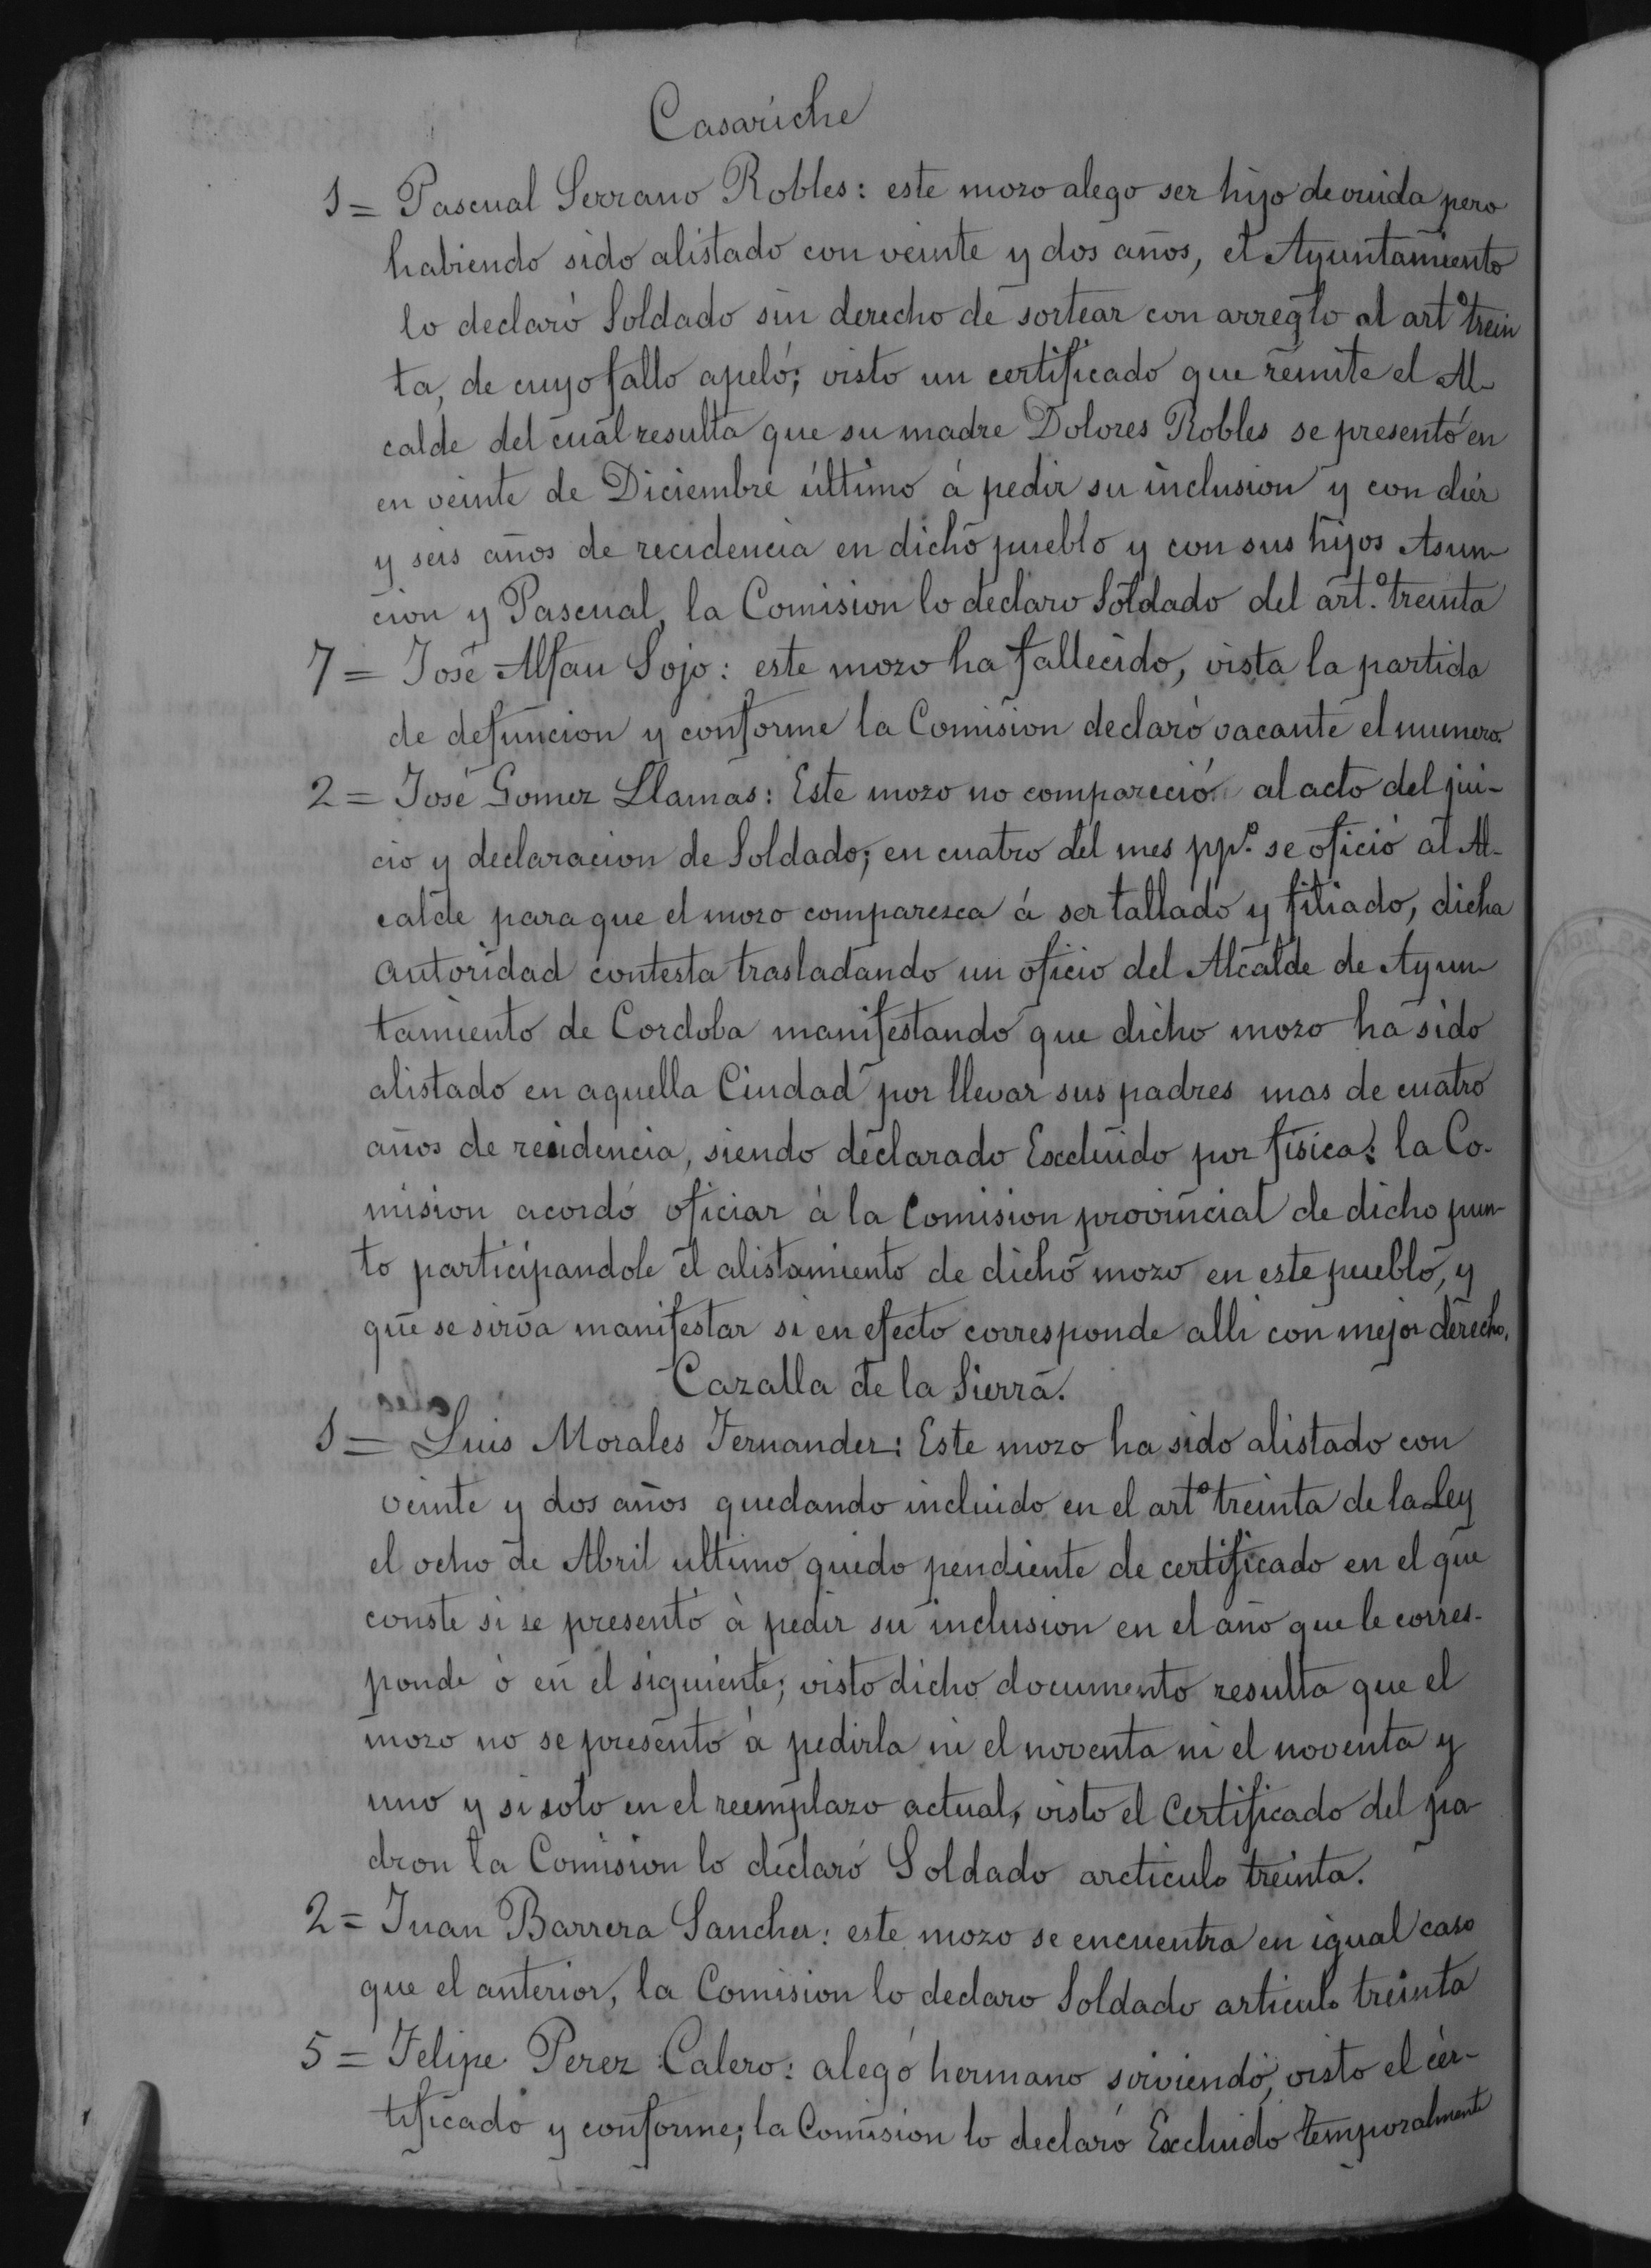 Casariche
1 = Pascual Serrano Robles: este mozo alego ser hijo de viuda pero
habiendo sido alistado con veinte y dos años, el Ayuntamiento
lo declaró Soldado sin derecho de sortear con arreglo al artº trein
ta, de cuyo fallo apeló; visto un certificado que remite el Al-
calde del cual resulta que su madre Dolores Robles se presentó en
en veinte de Diciembre último á pedir su inclusion y con diez
y seis años de recidencia en dicho pueblo y con sus hijos Asun-
cion y Pascual, la Comision lo declaro Soldado del art.º treinta
7 = José Alfau Sojo: este mozo ha fallecido, vista la partida
de defuncion y conforme la Comision declaró vacante el numero.
2 = José Gomez Llamas: Este mozo no compareció al acto del jui-
cio y declaracion de Soldado; en cuatro del mes pp.º se ofició al Al-
calde para que el mozo comparezca á ser tallado y filiado, dicha
autoridad contesta trasladando un oficio del Alcalde de Ayun-
tamiento de Cordoba manifestando que dicho mozo ha sido
alistado en aquella Ciudad por llevar sus padres mas de cuatro
años de residencia, siendo declarado Excluido por física: la Co-
mision acordó oficiar á la Comision provincial de dicho pun-
to participandole el alistamiento de dicho mozo en este pueblo, y
que se sirva manifestar si en efecto corresponde alli con mejor derecho.
Cazalla de la Sierra.
1 = Luis Morales Fernandez: Este mozo ha sido alistado con
veinte y dos años quedando incluido en el artº treinta de la Ley
el ocho de Abril ultimo quedo pendiente de certificado en el que
conste si se presentó á pedir su inclusion en el año que le corres-
ponde ó en el siguiente; visto dicho documento resulta que el
mozo no se presentó á pedirla ni el noventa ni el noventa y
uno y si solo en el reemplazo actual, visto el Certificado del pa-
dron la Comision lo declaró Soldado arcticulo treinta.
2 = Juan Barrera Sanchez: este mozo se encuentra en igual caso
que el anterior, la Comision lo declaro Soldado articulo treinta
5 = Felipe Perez Calero: alegó hermano sirviendo, visto el cer-
tificado y conforme; la Comision lo declaró Excluido temporalmente